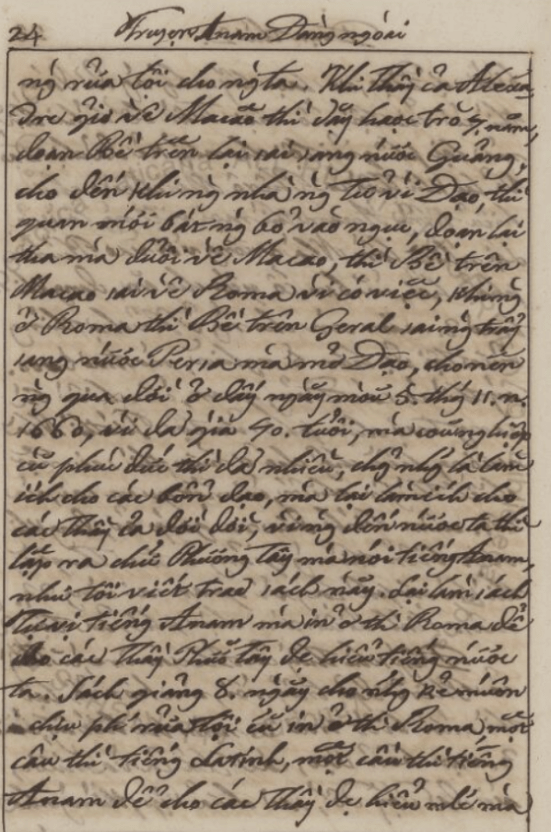 24 Truyện Anam Đàng ngoài
ng rửa tội cho ng ta. Khi thầy cả Alexan
dre gio về Macao thì dậy học trò 7. năm,
đoạn Bề trên lại sai sang nước Quảng,
cho đến khi ng nhà ng Ngô vì Đạo, thì
quan mới bắt ng bỏ vào ngục, đoạn lại
tha mà đuổi về Macao, thì Bề trên
Macao sai về Roma vì có việc, khi ng
ở Roma thì Bề trên Geral sai ng trẩy
sang nước Persa mà mở Đạo, cho nên
ng qua đời ở đấy ngày mồi 5. thág 11. n.
1660, vừa đã già 70. tuổi, mà coũng nghiệp
cũ phúc đức thì đã nhiều, chg nhg là làm
ích cho các bổn đạo, mà lại làm ích cho
các thầy cả đời đời, vì ng đến nước ta thì
lập ra chữ Phương Tây mà nói tiếng Anam,
như tôi viết trao sách này. Lại làm sách
Tự vị tiếng Anam mà in ở th Roma để
cho các thầy Phươ Tây đc hiểu tiếng nước
ta. Sách giảng 8. ngày cho nhg kẻ muên
chịu phí rửa tội cũ in ở th Roma, một
câu thì tiếng Latinh, một câu thì tiếng
Anam để cho các thầy đc hiểu mlẽ mà